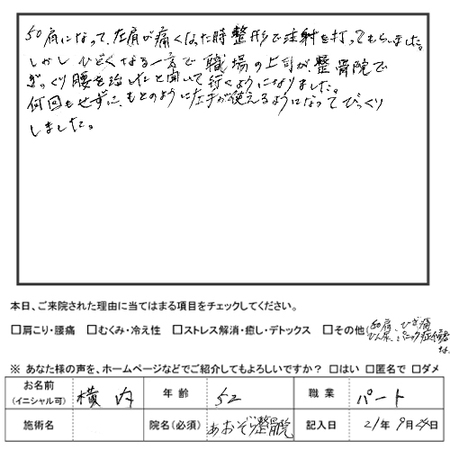 50肩になって、左肩が痛くなった時整形で注射を打ってもらいました。
しかしひどくなる一方で職場の上司が、整骨院で
ぎっくり腰を治したと聞いて行くようになりました。
何回もせずに、もとのように左手が使えるようになってびっくり
しました。
本日、ご来院された理由に当てはまる項目をチェックしてください。
□肩こり・腰痛 □むくみ・冷え性 □ストレス解消・癒し・デトックス □その他(50肩、ひざ痛
パニック症候群
※ あなた様の声を、ホームページなどでご紹介してもよろしいですか？ □はい □匿名で □ダメ
お名前 (イニシャル可) 横内 年齢 52 職業 パート
施術名 院名(必須) あおぞら整骨院 記入日 21年 9月 日